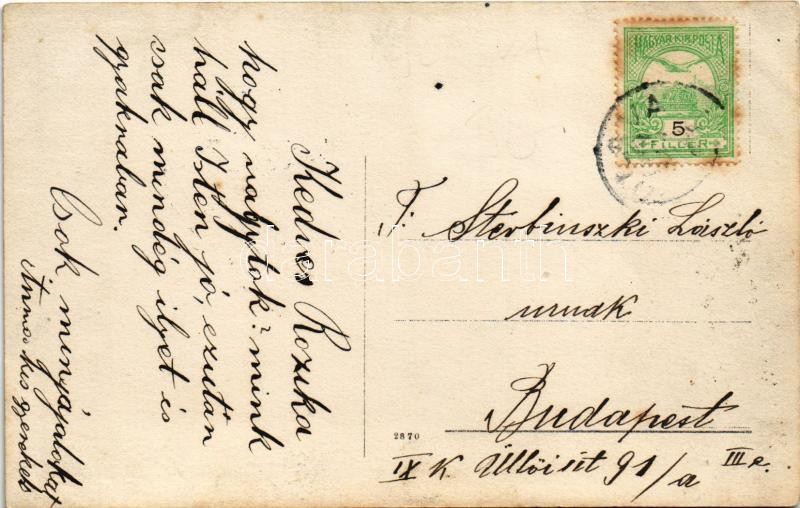 Kedves Rozika
hogy vagytok? mink
hál Isten jó, ezután
csak mindég ilyet és
gyakrabban.
Csók minyájatokat
Anna kis gyerekek
MAGYAR KIR. POSTA
5
FILLER
T. Sterbinszki László
urnak
Budapest
IX K. Üllői út 91/a III e.
2870
darabanth